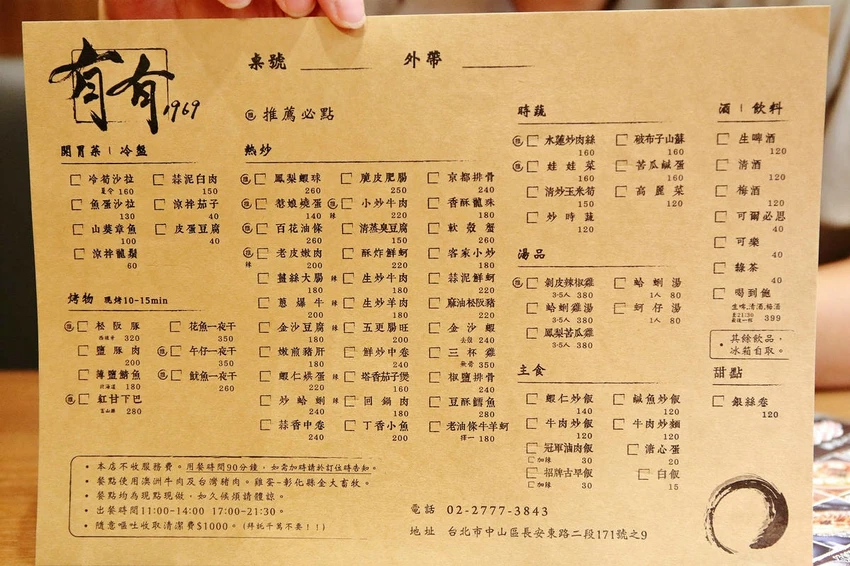 有有 1969
桌號 外帶
推 推薦必點
開胃菜|冷盤
冷筍沙拉 夏令 160
蒜泥白肉 150
魚蛋沙拉 130
涼拌茄子 40
山葵章魚 100
皮蛋豆腐 40
涼拌龍鬚 60
烤物 現烤10-15min
推 松阪豚 320
花魚一夜干 350
鹽豚肉 200
推 午仔一夜干 350
薄鹽鯖魚 180
推 魷魚一夜干 260
推 紅甘下巴 280
熱炒
推 鳳梨蝦球 260
脆皮肥腸 250
京都排骨 240
推 老娘燒蛋 140
推 辣 小炒牛肉 220
香酥龍珠 180
推 百花油條 260
清蒸臭豆腐 150
軟殼蟹 260
推 辣 老皮嫩肉 200
酥炸鮮蚵 220
客家小炒 180
薑絲大腸 180
辣 生炒牛肉 200
蒜泥鮮蚵 220
蔥爆牛 200
辣 生炒羊肉 180
麻油松阪豬 220
金沙豆腐 180
辣 五更腸旺 200
金沙蝦 去殼 240
嫩煎豬肝 180
鮮炒中卷 240
三杯雞 無骨 350
蝦仁烘蛋 220
辣 塔香茄子煲 160
椒鹽排骨 240
炒蛤蜊 240
辣 回鍋肉 180
豆酥鱈魚 280
蒜香中卷 240
丁香小魚 200
老油條牛羊蚵 擇一 180
時蔬
推 水蓮炒肉絲 160
破布子山蘇 160
推 娃娃菜 160
苦瓜鹹蛋 160
清炒玉米筍 150
高麗菜 120
炒時蔬 120
湯品
推 剝皮辣椒雞 3-5人 380
蛤蜊湯 1人 80
蛤蜊雞湯 3-5人 380
蚵仔湯 1人 80
鳳梨苦瓜雞 3-5人 380
主食
蝦仁炒飯 140
鹹魚炒飯 140
牛肉炒飯 120
牛肉炒麵 120
冠軍滷肉飯 加辣 30
溏心蛋 20
招牌古早飯 加辣 30
白飯 15
酒|飲料
生啤酒 120
清酒 120
梅酒 120
可爾必思 40
可樂 40
綠茶 40
喝到飽
生啤,清酒,梅酒
至21:30 最後一輪 399
• 其餘飲品,
冰箱自取。
甜點
銀絲卷 120
• 本店不收服務費。用餐時間90分鐘,如需加時請於訂位時告知。
• 餐點使用澳洲牛肉及台灣豬肉。雞蛋-彰化縣金大畜牧。
• 餐點均為現點現做,如久候煩請體諒。
• 出餐時間11:00-14:00 17:00-21:30。
• 隨意嘔吐收取清潔費$1000。(拜託千萬不要!!)
電話 02-2777-3843
地址 台北市中山區長安東路二段171號之9